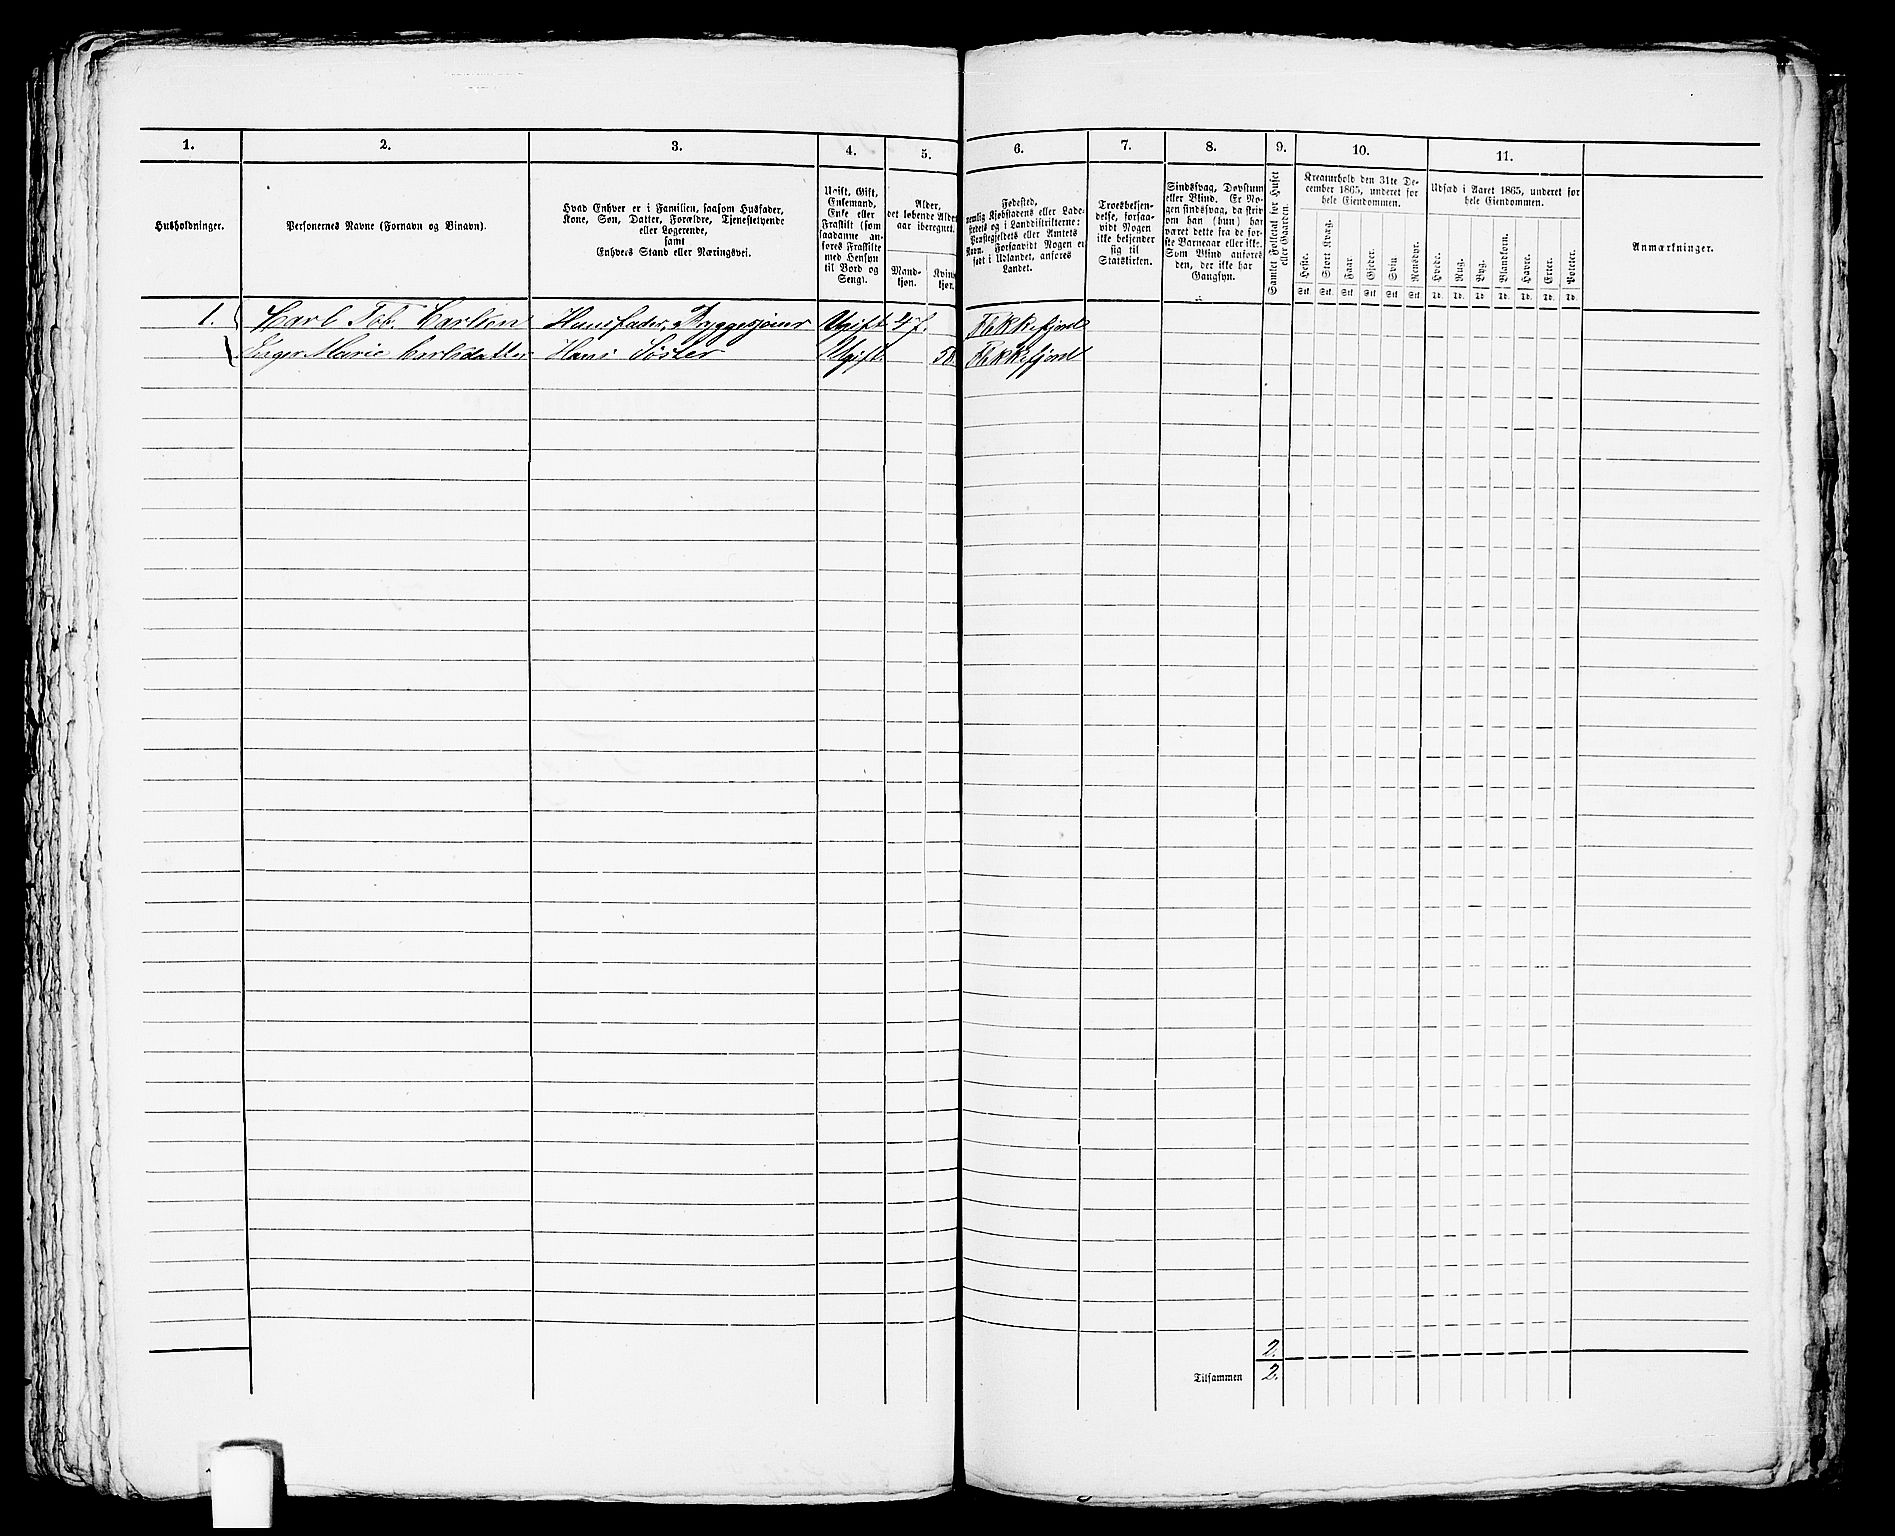 1. 2. 3. 4. 5. 6. 7. 8. 9. 10. 11.
Husholdninger.
Personernes Navne (Fornavn og Binavn).
Hvad Enhver er i Familien, saasom Husfader,
Kone, Søn, Datter, Forældre, Tjenestetyende
eller Logerende,
samt
Enhvers Stand eller Næringsvei.
Ugift, Gift,
Enkemand,
Enke eller
Fraskilt (som
saadanne an-
føres Fraskilte
med Hensyn
til Bord og
Seng).
Alder,
det løbende Alder
aar iberegnet.
Mand-
kjøn.
Kvin
kjøn.
Fødested,
nemlig Kjøbstadens eller Lade-
stedets og i Landdistrikterne:
Præstegjeldets eller Amtets
Navn. Forsaavidt Nogen er
født i Udlandet, anføres
Landet.
Troesbekjen-
delse, forsaa-
vidt Nogen
ikke bekjender
sig til
Statskirken.
Sindssvag, Døvstum
eller Blind. Er No-
gen sindssvag, da skriv
om han (hun) har
været dette fra de før-
ste Barneaar eller ikke.
Som Blind anføres
den, der ikke har
Gangsyn.
Samlet Folketal for Huset
eller Gaarden.
Kreaturhold den 31te De-
cember 1865, underet for
hele Eiendommen.
Heste. Stort Kvæg. Faar. Gjeder. Svin. Rensdyr.
Stk. Stk. Stk. Stk. Stk. Stk.
Udsæd i Aaret 1865, underet for
hele Eiendommen.
Hvede. Rug. Byg. Blandkorn. Havre. Erter. Poteter.
Td. Td. Td. Td. Td. Td. Td.
Anmærkninger.
1. Carl Tob. Carlsen Huusfader, Ugift 47. Flekkefjord
Marie Carlsdatter Hans Søster Ugift Flekkefjord
2.
Tilsammen 2.